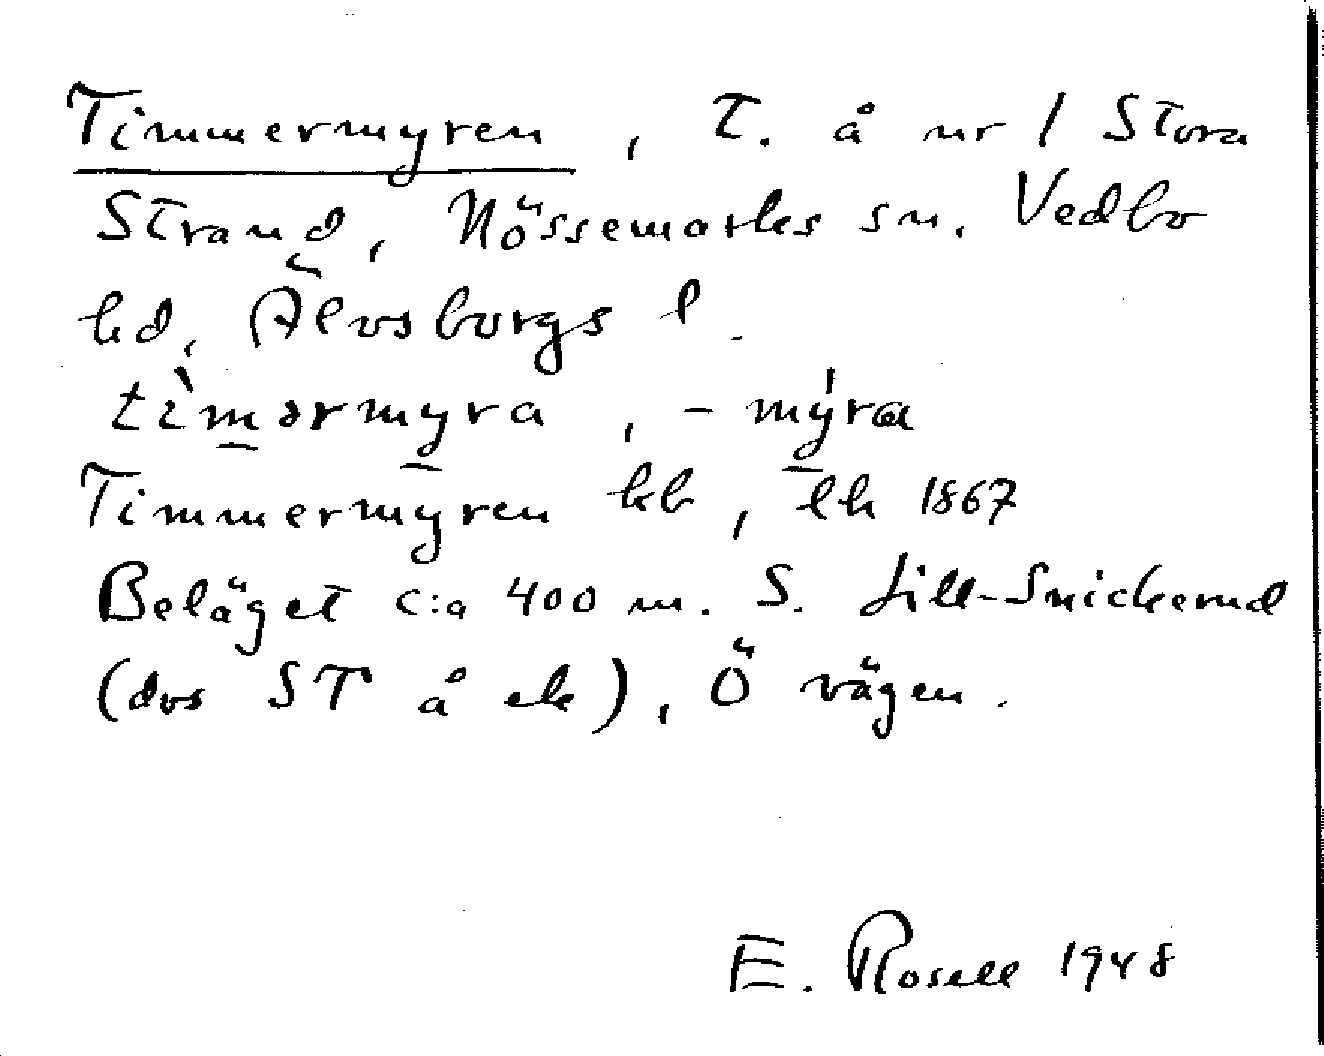 Timmermyren, T. å nr 1 Stora
Strand, Nössemarks sn. Vedbo
hd, Älvsborgs l.
tìmərmyra, -mýra
Timmermyren kb, lh 1867
Beläget c:a 400 m. S. Lill-Snickerud
(dvs ST å ek), Ö vägen.
E. Rosell 1948